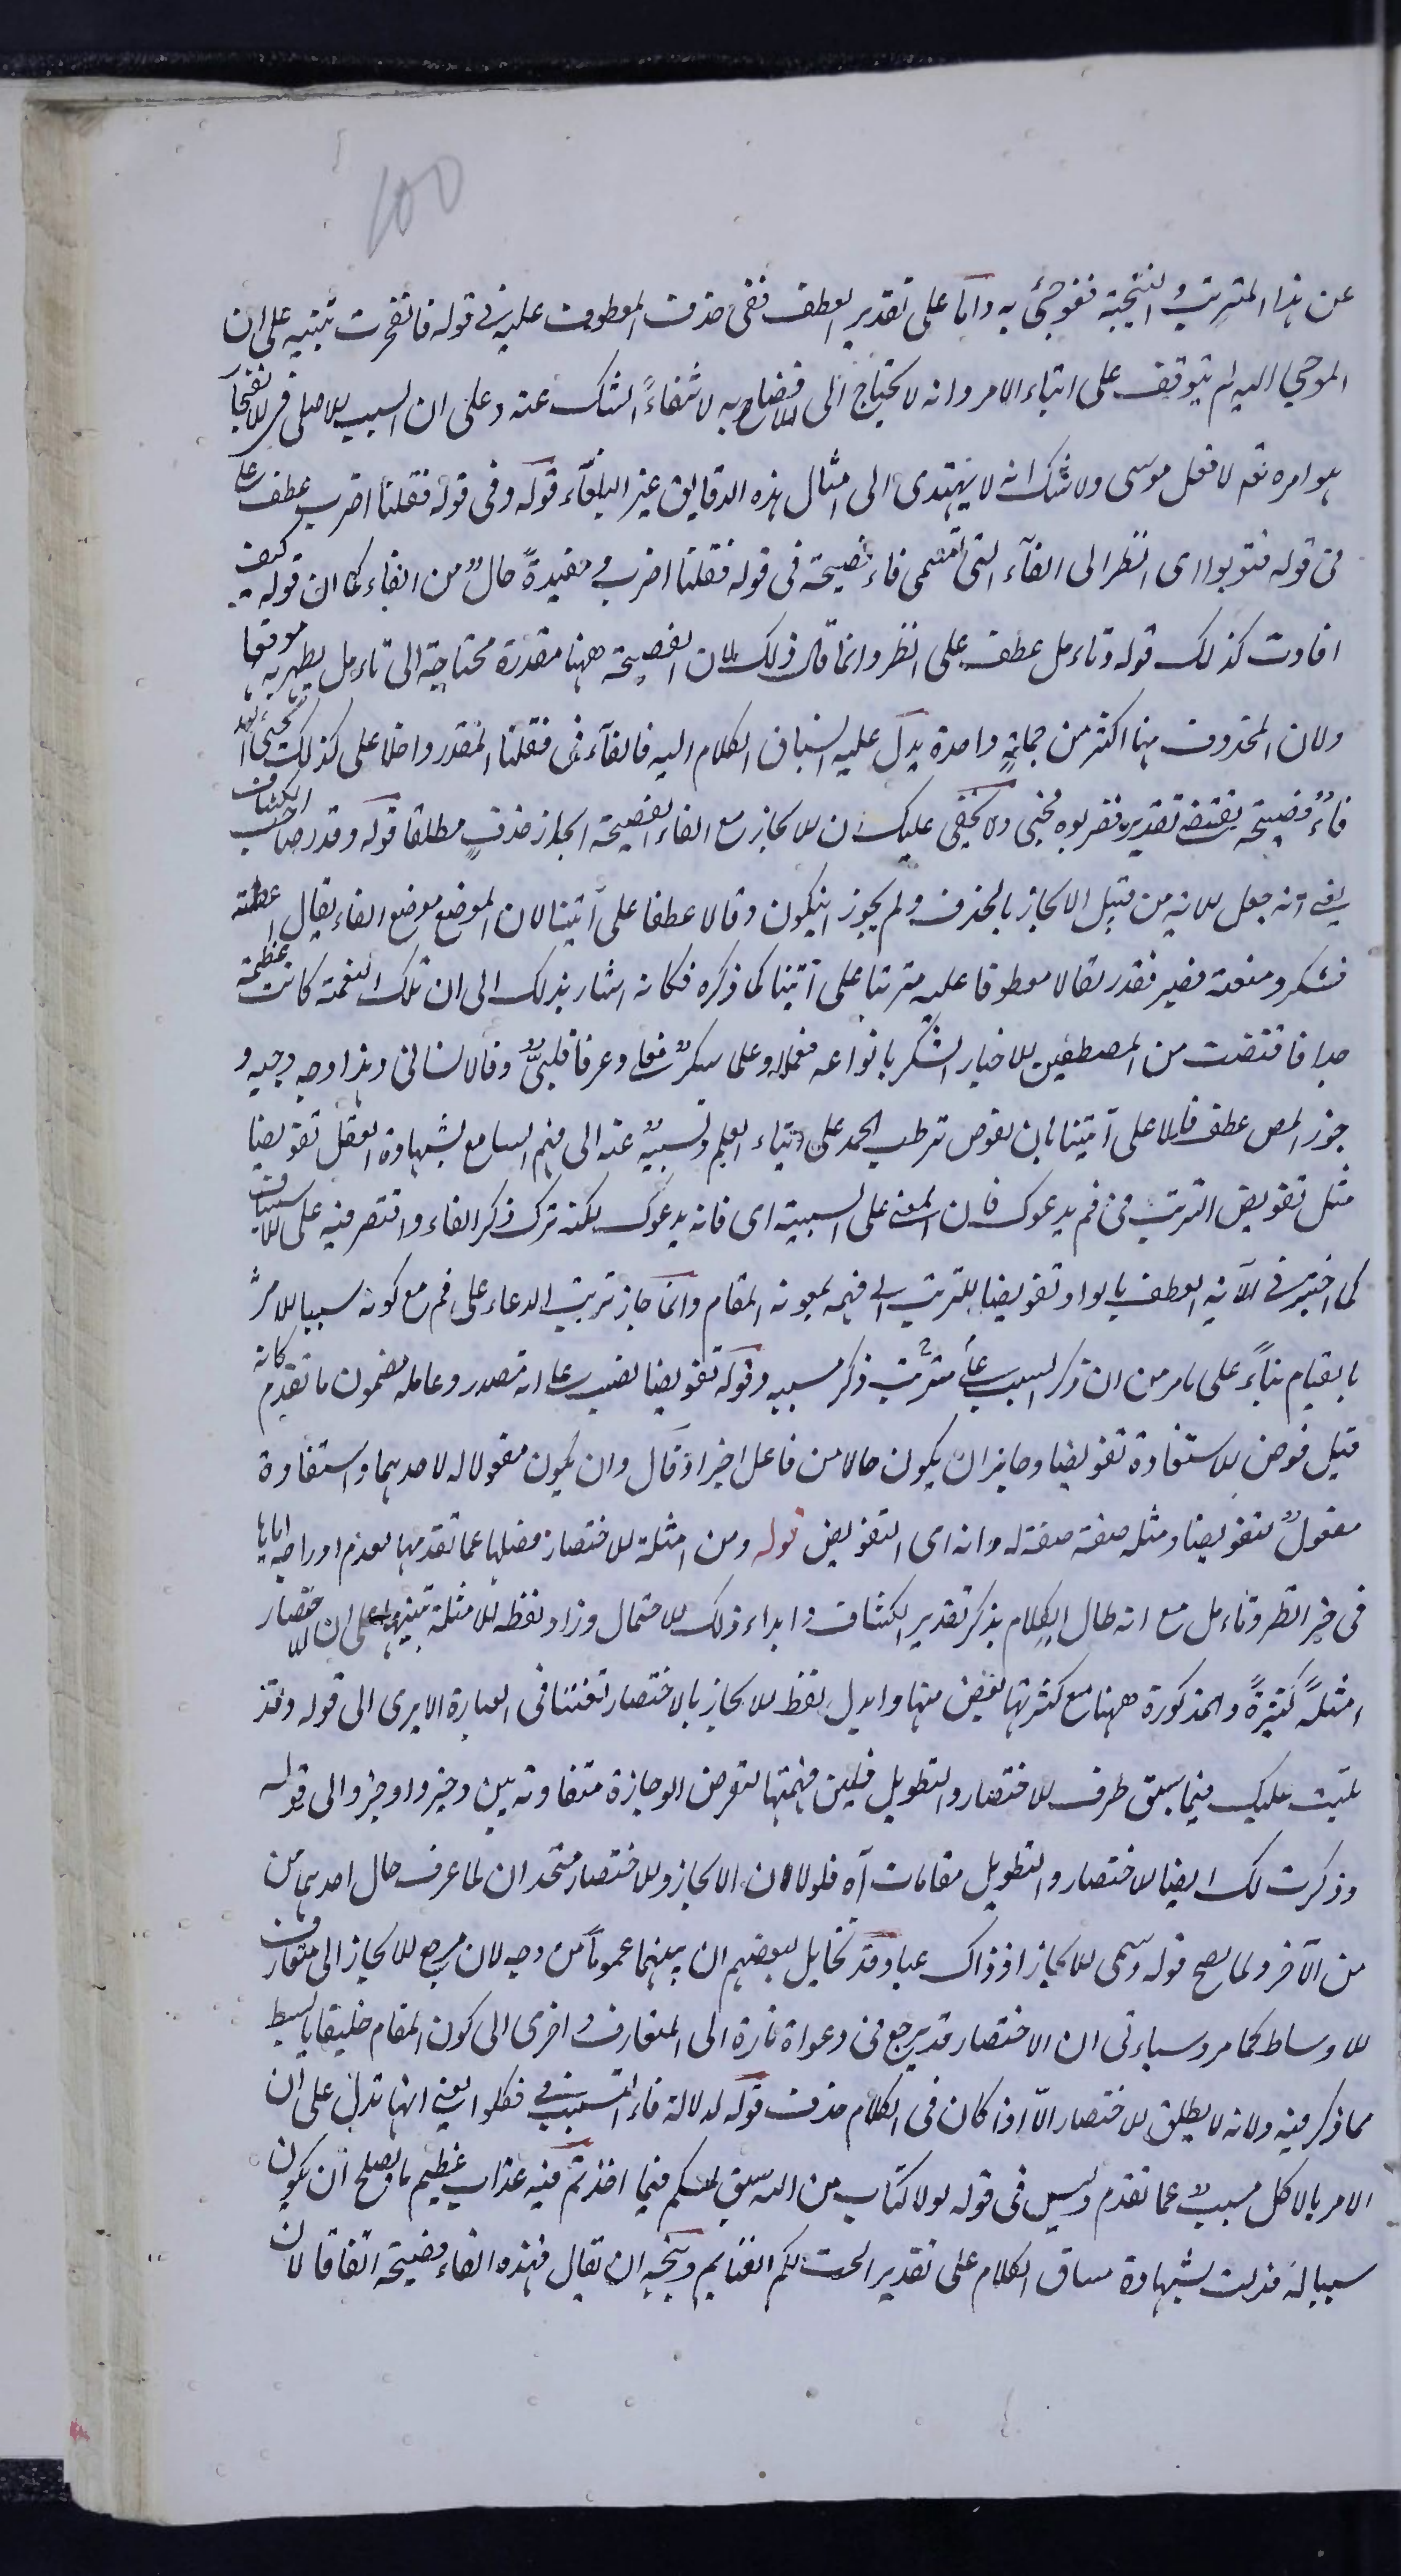 100
عن هذا المترتب والنتيجة ففوجئ به واما على تقدير العطف ففى حذف المعطوف عليه فى قوله فانفجرت تنبيه على ان
الموحى اليه لم يتوقف على اتباع الامر وانه لا يحتاج الى الافصاح به لانتفاء الشك عنه وعلى ان السبب الاصلى فى الانفجار
هو امره تعم لا فعل موسى ولا شك انه لا يهتدى الى امثال هذه الدقايق غير البلغاء قوله وفى قوله فقلنا اضرب عطف على
فى قوله فتوبوا اى انظر الى الفاء التى تسمى فاء فصيحة فى قوله فقلنا اضرب مفيدة حال من الفاء كما ان قوله كيف
افادت كذلك قوله وتاءمل عطف على انظر وانما قال ذلك لان الفصيحة ههنا مقدرة محتاجة الى تاءمل يظهر به موقعها
ولان المحذوف هنا اكثر من جملة واحدة يدل عليه انسياق الكلام اليه فالفاء فى فقلنا المقدر داخلا على كذلك يحيى الله
فاء فصيحة يقتضى تقدير فضربوه فحيى ولا يخفى عليك ان الايجاز مع الفاء الفصيحة ايجاز حذف مطلقا قوله وقدر صاحب الكشاف
يعنى انه جعل الاية من قبيل الايجاز بالحذف ولم يجوز ان يكون وقالا عطفا على آتينا لان الموضع موضع الفاء يقال اعطيته
فشكر ومنعته فصبر فقدر لقالا معطوفا عليه مترتبا على آتينا كما ذكره فكانه اشار بذلك الى ان تلك النعمة كانت عظيمة
جدا فاقتضت من المصطفين الاخيار الشكر بانواعه فعملا وعلما شكر فعلى وعرفا قلبى وقالا لسانى وهذا وجه وجيه و
جوز المص عطف قالا على آتينا بان يفوض ترتب الحمد على ايتاء العلم وتسببه عنه الى فهم السامع بشهادة العقل تفويضا
مثل تفويض الترتب فى قم يدعوك فان المعنى على السببية اى فانه يدعوك لكنه ترك ذكر الفاء واقتصر فيه على الاستيناف
كما اختير فى الآية العطف بالواو تفويضا للترتب الى فهمه بمعونة المقام وانما جاز ترتيب الدعاء على قم مع كونه سببا للامر
بالقيام بناءً على ما مر من ان ذكر السبب مترتب ذكر مسببه وقوله تفويضا نصب على انه مصدر وعامله مضمون ما تقدم كانه
قيل فوض الاستفادة تفويضا وجاز ان يكون حالا من فاعل اخبر او قال وان يكون مفعولا له لاحدهما واستفادة
مفعول لتفويضا ومثله صفة صفة له وانه اى التفويض قوله ومن امثلة الاختصار فصلها عما تقدمها لعدم ادراجه اياها
فى حيز انظر وتاءمل مع انه طال الكلام بذكر تقدير الكشاف وابداء ذلك الاحتمال وزاد لفظة الامثلة تنبيها على ان للاختصار
امثلة كثيرة والمذكورة ههنا مع كثرتها بعض منها وابدل لفظ الايجاز بالاختصار تفننا فى العبارة الا يرى الى قوله وقد
تليت عليك فيما سبق طرف الاختصار والتطويل فلين فهمتها لتعرفن الوجازة متفاوتة بين وجيز واوجز والى قوله
وذكرت لك ايضا للاختصار والتطويل مقامات آه فلولا ان الايجاز والاختصار متحدان لما عرف حال احدهما من
من الآخر ولما يصح قوله وسمى الايجاز اذ ذاك عيا وقد تخايل لبعضهم ان بينهما عموما من وجه لان مرجع الايجاز الى متعارف
الاوساط كما مر وسياءتى ان الاختصار قد يرجع فى دعواه تارة الى المتعارف واخرى الى كون المقام خليقا بابسط
مما ذكر فيه ولانه لا يطلق الاختصار الا اذا كان فى الكلام حذف قوله لدلالة فاء التسبيب فى فكلوا يعنى انها تدل على ان
الامر بالاكل مسبب عما تقدم وليس فى قوله لولا كتاب من الله سبق لمسكم فيما اخذتم فيه عذاب عظيم ما يصلح ان يكون
سببا له فدلت بشهادة مساق الكلام على تقدير احلت لكم الغنايم ويتجه ان يقال فهذه الفاء فصيحة اتفاقا لان